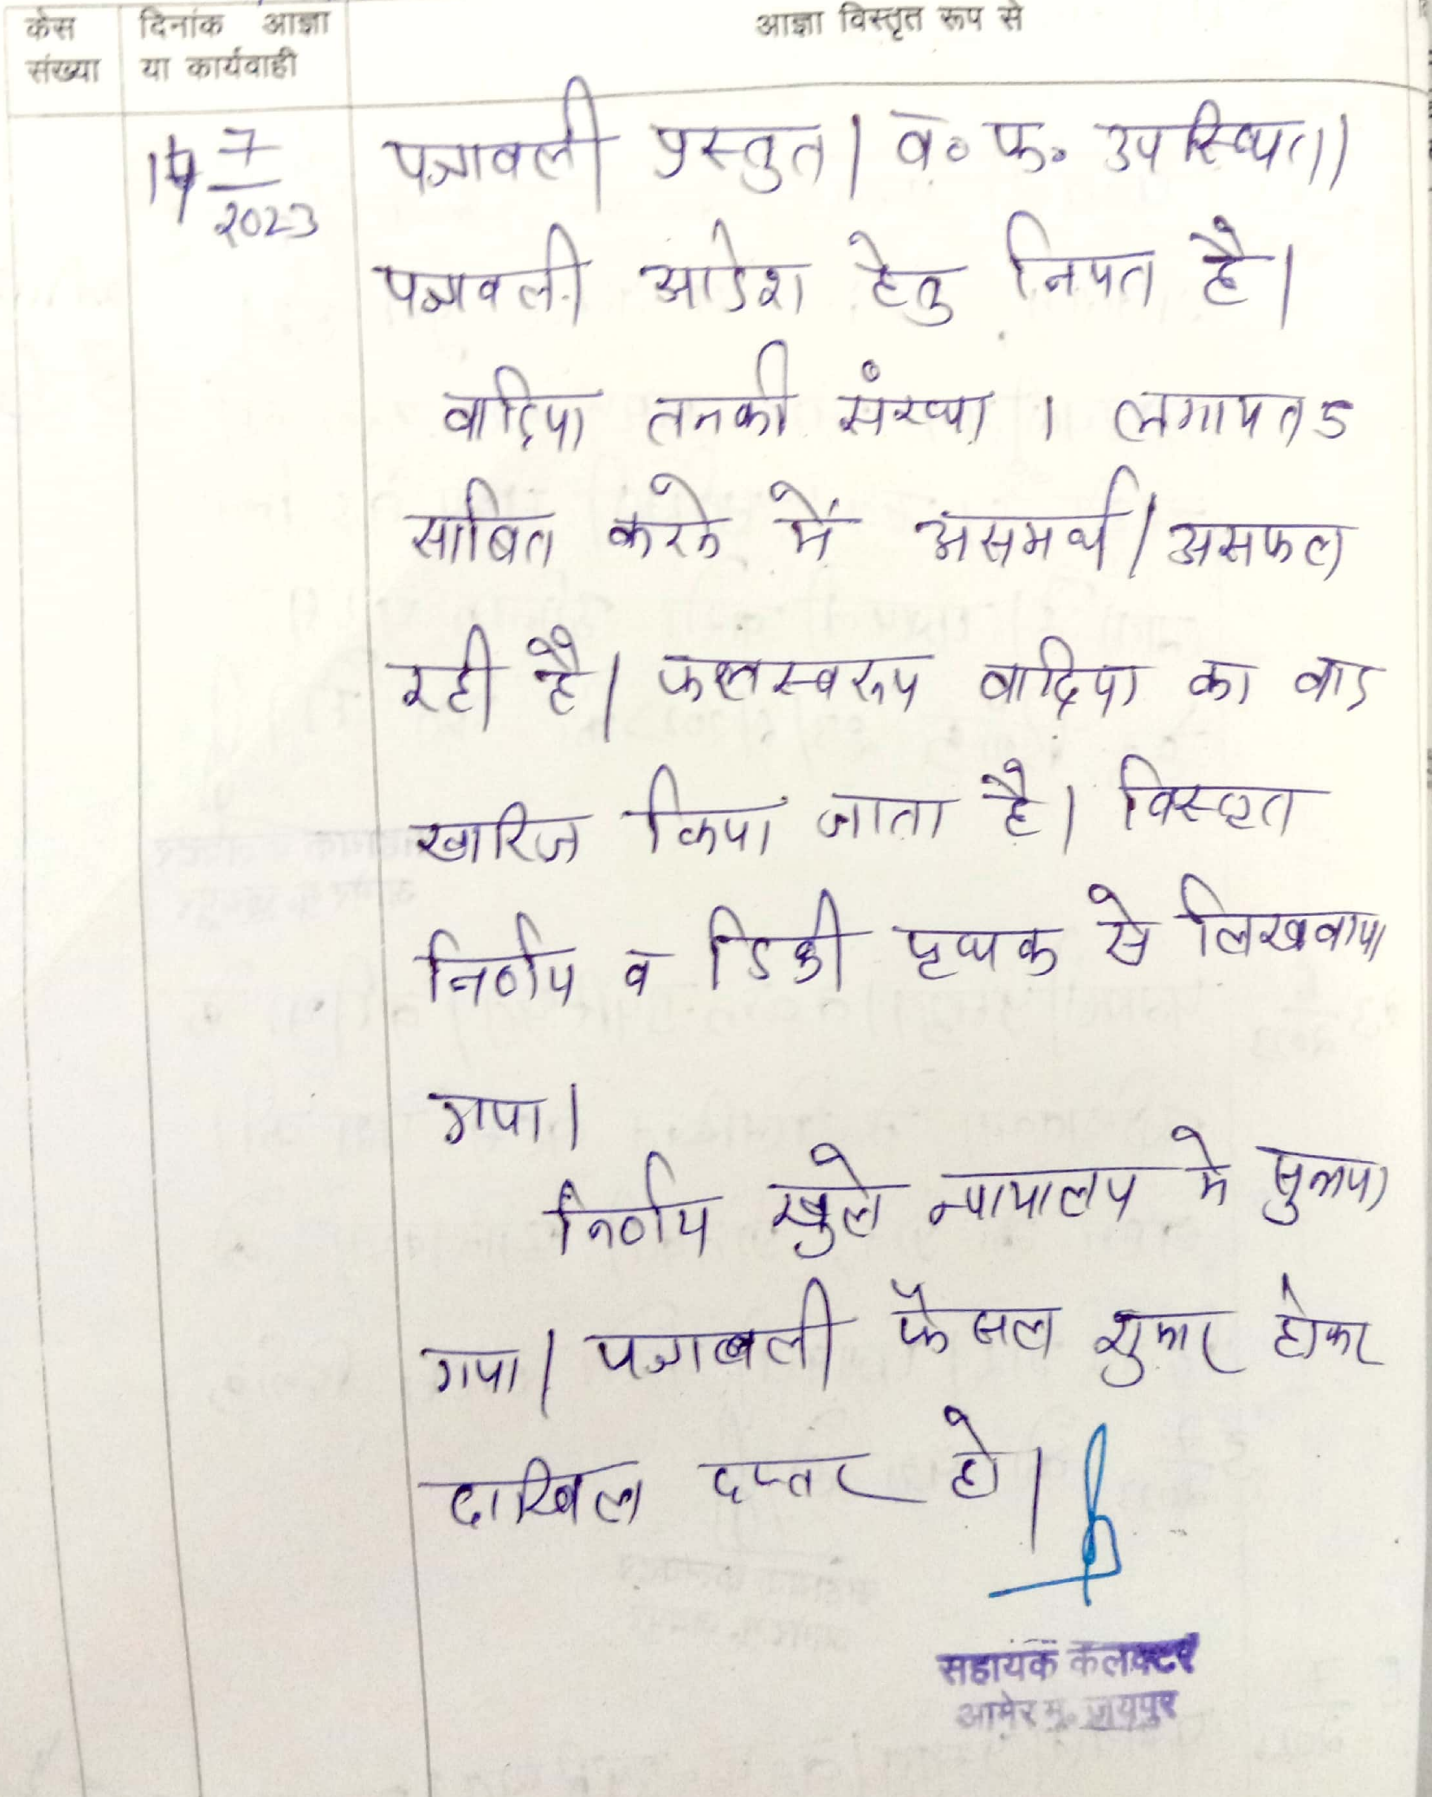 केस संख्या
दिनांक आज्ञा या कार्यवाही
आज्ञा विस्तृत रूप से
14/7/2023
पत्रावली प्रस्तुत। व॰ फ॰ उपस्थित।
पत्रावली आदेश हेतु नियत है।
वादिया तनकी संख्या 1 लगायत 5
साबित करने में असमर्थ/असफल
रही है। फलस्वरूप वादिया का वाद
खारिज किया जाता है। विस्तृत
निर्णय व डिक्री पृथक से लिखवाया
गया।
निर्णय खुले न्यायालय मे सुनाया
गया। पत्रावली फैसल शुमार होकर
दाखिल दफ्तर हो।
सहायक कलक्टर
आमेर मु. जयपुर